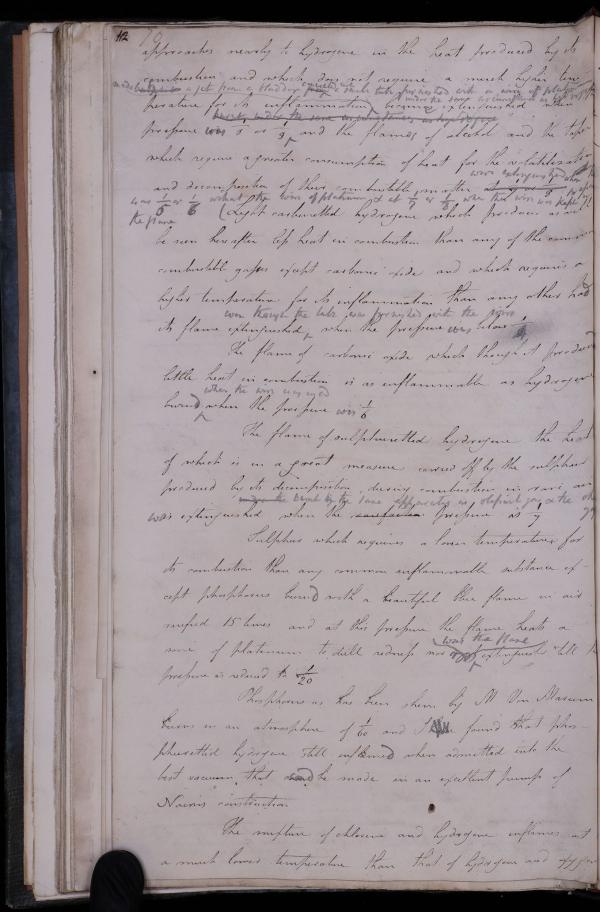 12
approaches nearly to hydrogene in the heat produced by its
combustion and which does not require a much higher tem
made by a jet from a bladder connected with a small tube furnished with a wire of platinum
under the same circumstances as hydrogene
perature for its inflammation became extinguished when
pressure was as 1/9 and the flames of alcohol and the taper
which require a greater consumption of heat for the volatilization
were extinguished when the
and decomposition of their combustible matter
was 1/5 or 1/6 without the wire of platinum & at 1/7 or 1/8 when the wire was kept in
the flame
(Light carburetted hydrogene which produces as will
be seen hereafter less heat in combustion than any of the common
combustible gases except carbonic oxide and which requires a
higher temperature for its inflammation than any other had
even though the tube was furnished with the wire
its flame extinguished, when the pressure was below 1/4
The flame of carbonic oxide which though it produces
little heat in combustion is as inflammable as hydrogene
when the wire was used
burned when the pressure was 1/6
The flame of sulphuretted hydrogene the heat
of which is in a great measure carried off by the sulphur
produced by its decomposition during combustion in rare air
burnt by the same apparatus as olefiant gas & the other
was extinguished when the pressure as 1/7
Sulphur which requires a lower temperature for
its combustion than any common inflammable substance ex-
cept phosphorus burned with a beautiful blue flame in air
rarefied 15 times and at this pressure the flame heats a
wire of platinum to dull redness nor was the flame extinguished till the
pressure is reduced to 1/20
Phosphorus as has been shewn by M Van Marum
burns in an atmosphere of 1/60 and I found that phos-
phuretted hydrogene still inflamed when admitted into the
best vacuum that could be made in an excellent pump of
Nairn's construction
The mixture of chlorine and hydrogene inflames at
a much lower temperature than that of hydrogene and oxygene